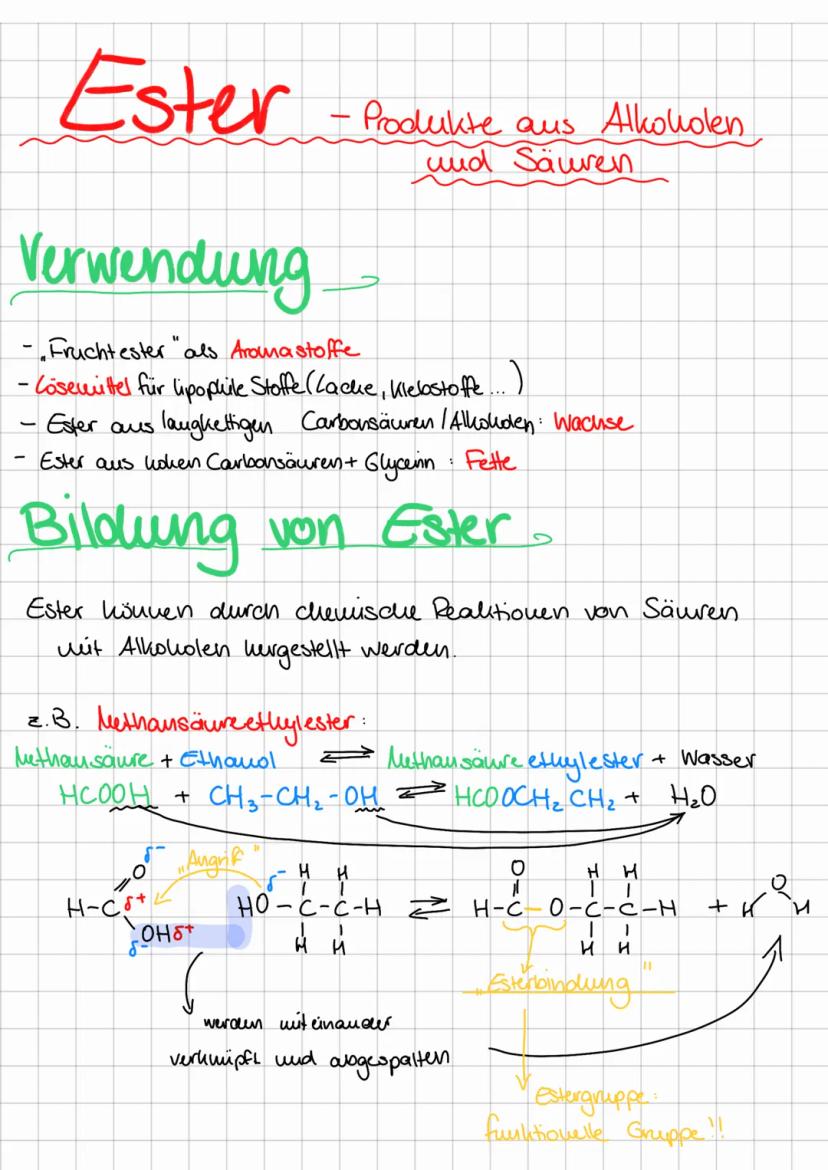 Ester - Produkte aus Alkoholen
und Säuren
Verwendung
- „Fruchtester" als Aromastoffe
- Lösemittel für lipophile Stoffe (Lacke, Klebstoffe ... )
- Ester aus langkettigen Carbonsäuren / Alkoholen: Wachse
- Ester aus hohen Carbonsäuren + Glycerin : Fette
Bildung von Ester
Ester können durch chemische Reaktionen von Säuren
mit Alkoholen hergestellt werden.
z.B. Methansäureethylester:
Methansäure + Ethanol ⇌ Methansäureethylester + Wasser
HCOOH + CH₃-CH₂-OH ⇌ HCOOCH₂CH₂ + H₂O
δ⁻ „Angriff" δ⁻ H H O H H
O
H-C δ⁺ HO-C-C-H ⇌ H-C-O-C-C-H + H O H
OH δ⁺
δ⁻ H H H H
„Esterbindung"
werden miteinander
verknüpft und abgespalten
Estergruppe:
funktionelle Gruppe!!